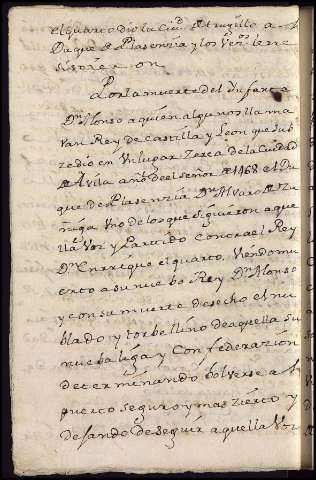 el quarto dio la Ciud de trugillo a el
Duque de Plasencia y los Vezos. le re
sistieron
Por la muerte del Infante
Dn. Alonso a quien algunos llama
van Rey de Castilla y Leon que sub
zedio en Un lugar Zerca de la Ciudad
de Avila año del señor de 1468 el Du
que de Plasenzia Dn. Alvaro de Zu
ñiga Uno de los que siguieron aque
lla Voz y Partido Contra el Rey
Dn. Enrrique el quarto, Viendo mu
erto a su nuebo Rey Dn. Alonso
y con su muerte desecho el nu
blado y torbellino de aquella su
nueba liga y Confederazión
determinando bolverse a el
puerto seguro y mas zierto y
desando de seguir aquella Voz